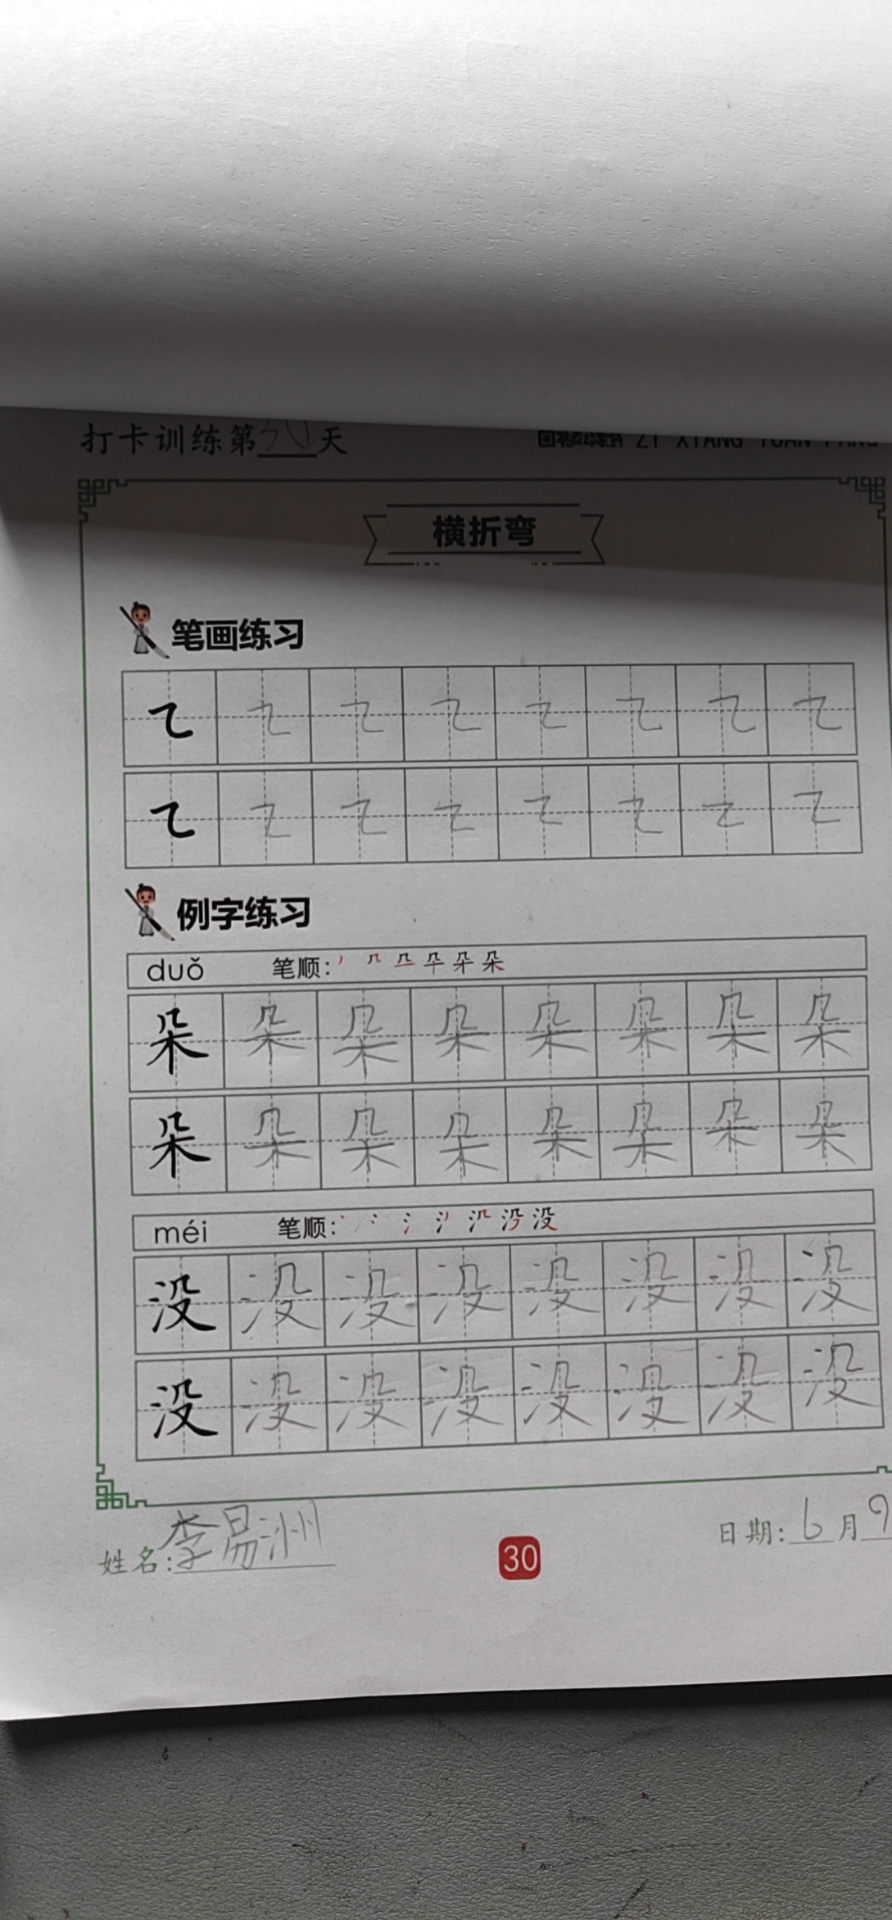 打卡训练第30天
ZI XIANG YUAN FANG
横折弯
笔画练习
㇍ ㇍ ㇍ ㇍ ㇍ ㇍ ㇍ ㇍
㇍ ㇍ ㇍ ㇍ ㇍ ㇍ ㇍ ㇍
例字练习
duǒ 笔顺:
朵 朵 朵 朵 朵 朵 朵 朵
朵 朵 朵 朵 朵 朵 朵 朵
méi 笔顺:
没 没 没 没 没 没 没 没
没 没 没 没 没 没 没 没
姓名:李易洲 30 日期:6月9